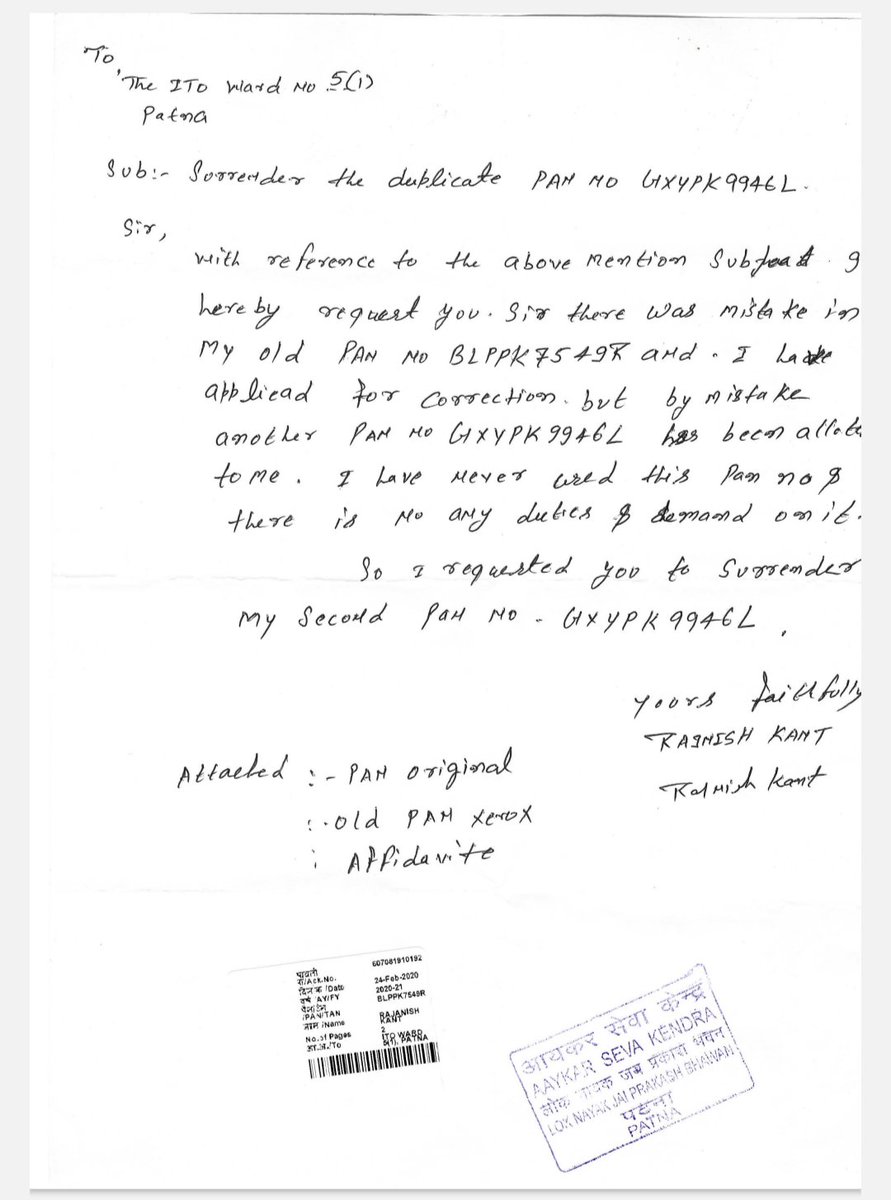 To,
The ITO Ward No 5(1)
Patna
Sub:- Surrender the duplicate PAN NO GXYPK9946L.
Sir,
With reference to the above mention Subject I
hereby request you. Sir there was mistake in
My old PAN NO BLPPK7549R and. I have
appliead for correction. but by mistake
another PAN NO GXYPK9946L has been allote
to me. I have never used this Pan no &
there is no any duties & demand on it.
So I requested you to Surrender
My Second PAN NO - GXYPK9946L.
Yours faithfully
RAJNISH KANT
Rajnish Kant
Attached :- PAN original
:- old PAN xerox
: Affidavite
पावती
सं/Ack.No. 607081910192
दिनांक /Date 24-Feb-2020
वर्ष AY/FY 2020-21
/PAN/TAN BLPPK7549R
नाम /Name RAJANISH KANT
No.of Pages 2
/To ITO WARD 5(1), PATNA
आयकर सेवा केन्द्र
AAYKAR SEVA KENDRA
लोक नायक जय प्रकाश भवन
LOK NAYAK JAI PRAKASH BHAWAN
पटना
PATNA